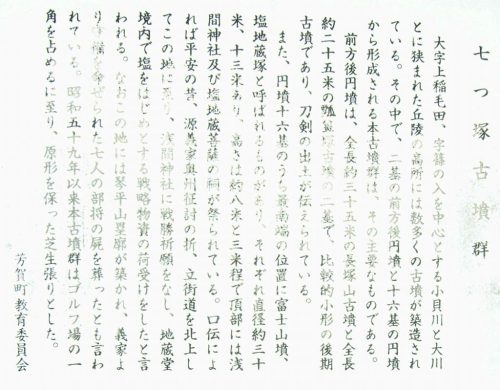 七つ塚古墳群
大字上稲毛田、字篠の入を中心とする小貝川と大川
とに狭まれた丘陵の高所には数多くの古墳が築造され
ている。その中で、二基の前方後円墳と十六基の円墳
から形成される本古墳群は、その主要なものである。
前方後円墳は、全長約三十五米の長塚山古墳と全長
約二十五米の瓢箪塚古墳の二基で、比較的小形の後期
古墳であり、刀剣の出土が伝えられている。
また、円墳十六基のうち最南端の位置に富士山墳、
塩地蔵塚と呼ばれるものがあり、それぞれ直径約三十
米、十三米あり、高さは約八米と三米程で頂部には浅
間神社及び塩地蔵菩薩の祠が祭られている。口伝によ
れば平安の昔、源義家奥州征討の折、立街道を北上し
てこの地に至り、浅間神社に戦勝祈願をなし、地蔵堂
境内で塩をはじめとする戦略物資の荷受けをしたと言
われる。なおこの地には琴平山塁廓が築かれ、義家よ
り守備を命ぜられた七人の部将の屍を葬ったとも言わ
れている。昭和五十九年以来本古墳群はゴルフ場の一
角を占めるに至り、原形を保った芝生張りとした。
芳賀町教育委員会